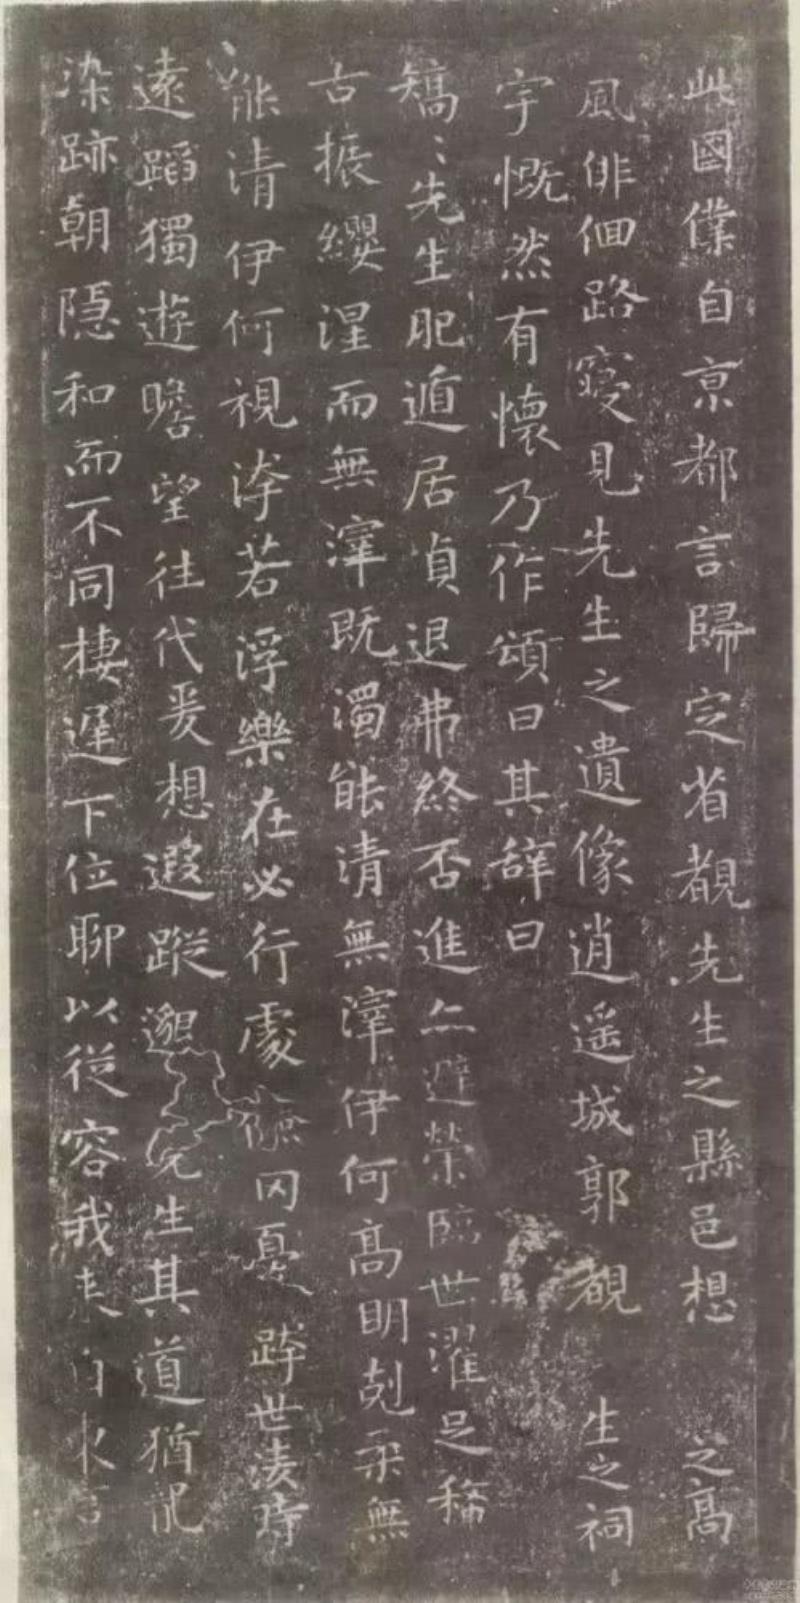 此國僕自京都言歸定省覩先生之縣邑想之高
風俳佪路寑見先生之遺像逍遥城郭覩生之祠
宇慨然有懷乃作頌曰其辞曰
矯〻先生肥遁居貞退弗終否進亦避榮臨世濯足稀
古振纓涅而無滓既濁能清無滓伊何高明剋柔無
能清伊何視洿若浮樂在必行處儉罔憂跨世淩時
遠蹈獨遊瞻望往代爰想遐蹤邈先生其道猶龍
染跡朝隱和而不同棲遅下位聊以從容我来自東言